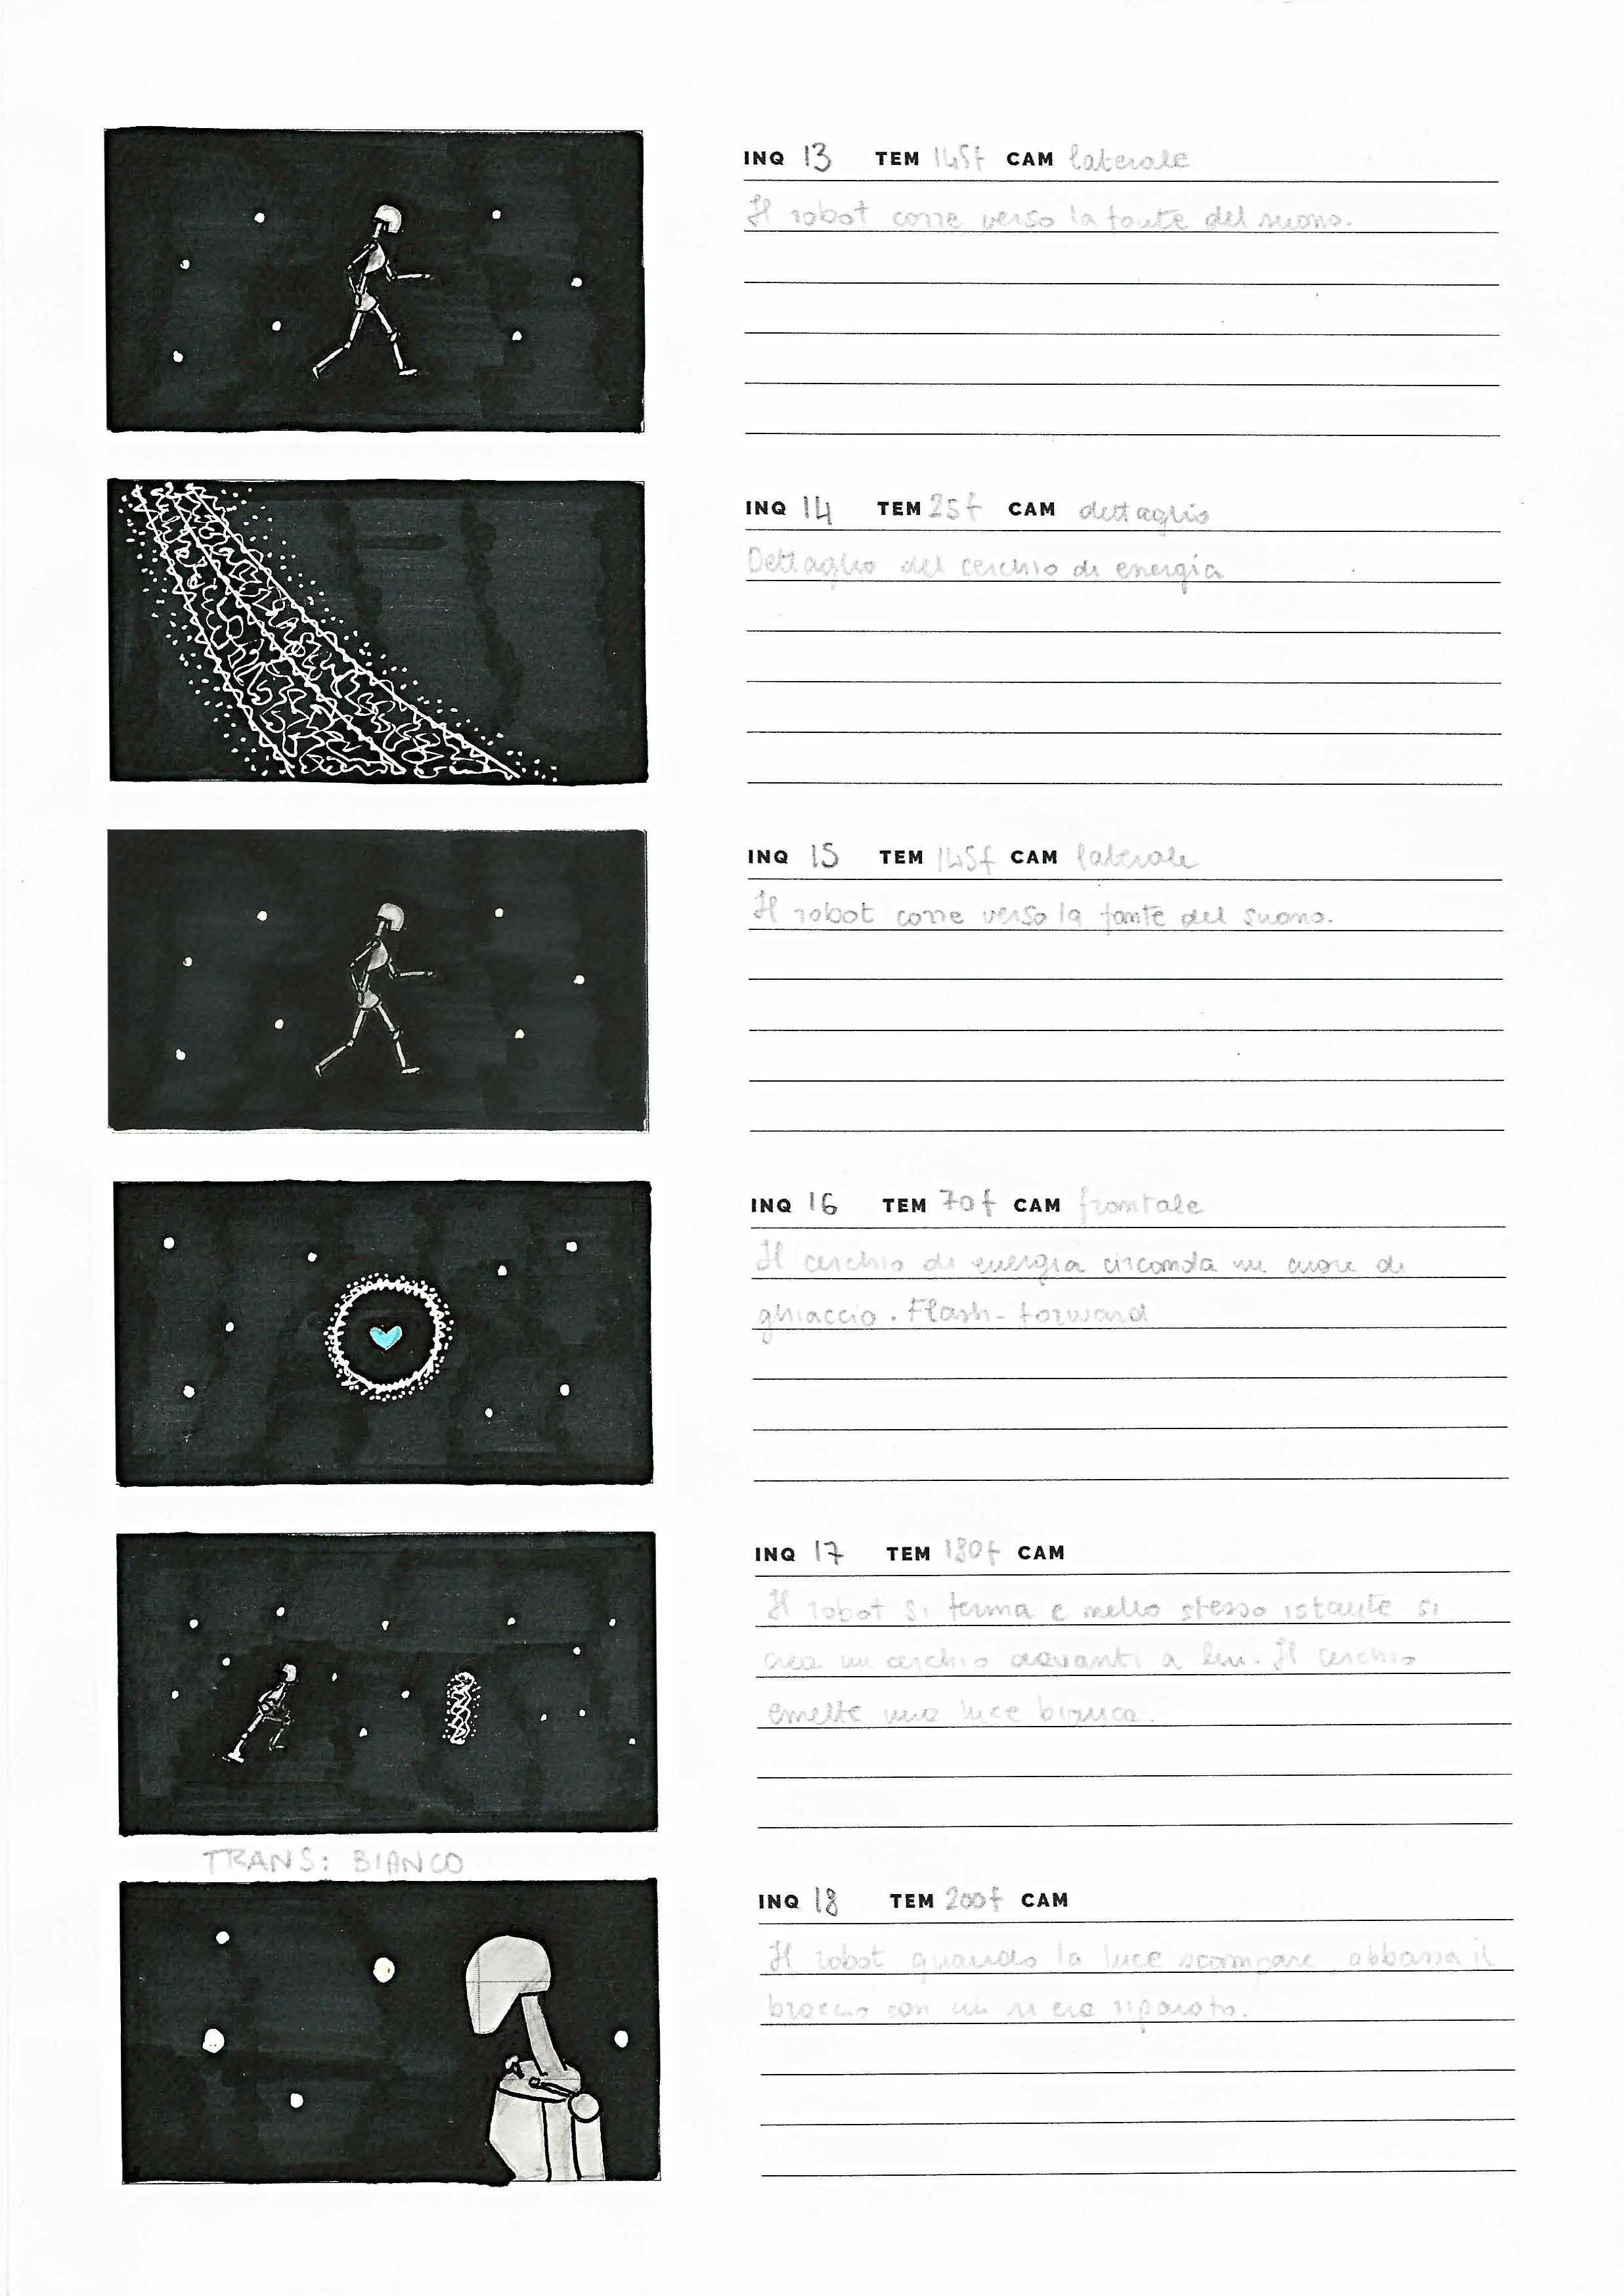 INQ 13 TEM 145f CAM laterale
Il robot corre verso la fonte del suono.
INQ 14 TEM 25f CAM dettaglio
Dettaglio del cerchio di energia
INQ 15 TEM 145f CAM laterale
Il robot corre verso la fonte del suono.
INQ 16 TEM 70f CAM frontale
Il cerchio di energia circonda un cuore di
ghiaccio. Flash-forward
INQ 17 TEM 180f CAM
Il robot si ferma e nello stesso istante si
crea un cerchio davanti a lui. Il cerchio
emette una luce bianca.
TRANS: BIANCO
INQ 18 TEM 200f CAM
Il robot, quando la luce scompare, abbassa il
braccio con cui si era riparato.